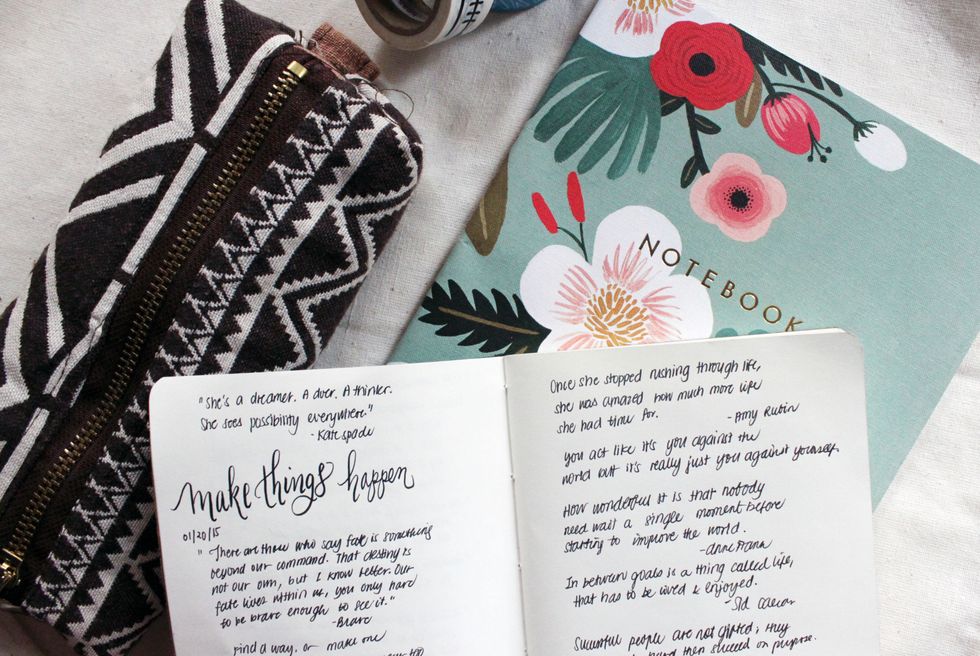 NOTEBOOK
"She's a dreamer. A doer. A thinker.
She sees possibility everywhere."
- Kate Spade
make things happen
01/20/15
"There are those who say fate is something
beyond our command. That destiny is
not our own, but I know better. Our
fate lives within us, you only have
to be brave enough to see it."
- Brave
Find a way, or make one
Once she stopped rushing through life,
she was amazed how much more life
she had time for.
- Amy Rubin
you act like it's you against the
world but it's really just you against yourself
How wonderful it is that nobody
need wait a single moment before
starting to improve the world.
- anne Frank
In between goals is a thing called life,
that has to be lived & enjoyed.
- Sid Caesar
Successful people are not gifted; they
hard then succeed on purpose.